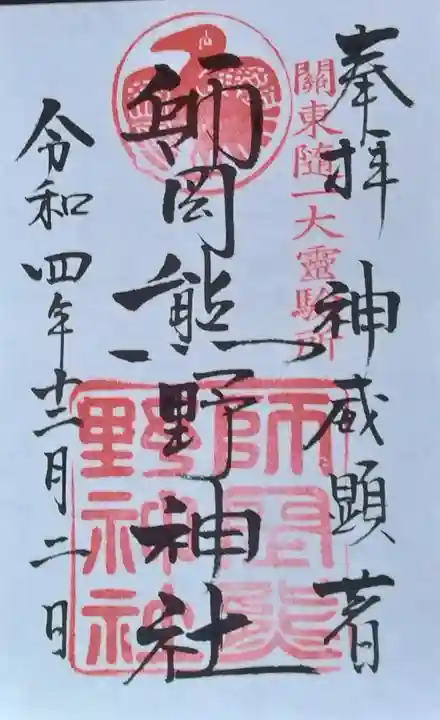 奉拝 神威顕著
關東随一大靈験所
師岡熊野神社
師岡熊野神社
令和四年十二月二日